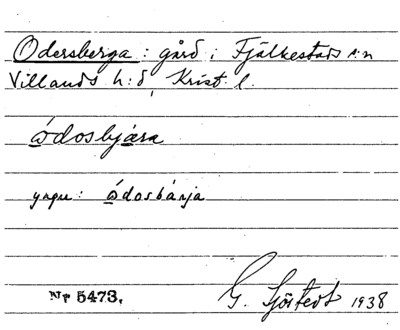 Odersberga : gård i Fjälkestads s:n
Villands h:d, Krist. l.
ǿdosbjæra
yngre: ǿdosbárja
Nr 5473.
G. Sjöstedt 1938